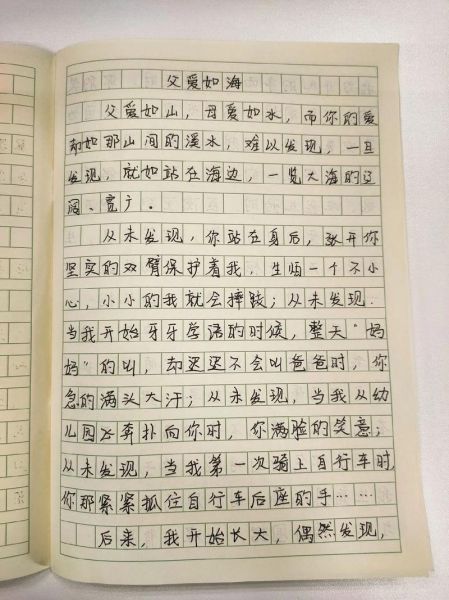 父爱如海
父爱如山，母爱如水，而你的爱
却如那山间的溪水，难以发现，一旦
发现，就如站在海边，一览大海的辽
阔、宽广。
从未发现，你站在身后，张开你
坚实的双臂保护着我，生怕一个不小
心，小小的我就会摔跤；从未发现，
当我开始牙牙学语的时候，整天“妈
妈”的叫，却迟迟不会叫爸爸时，你
急的满头大汗；从未发现，当我从幼
儿园飞奔扑向你时，你满脸的笑意；
从未发现，当我第一次骑上自行车时，
你那紧紧抓住自行车后座的手……
后来，我开始长大，偶然发现，